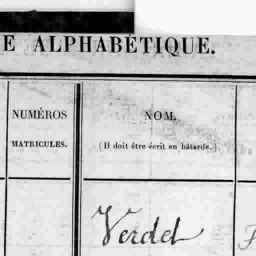 E ALPHABÉTIQUE.
NUMÉROS
MATRICULES.
NOM.
(Il doit être écrit en bâtarde.)
Verdel